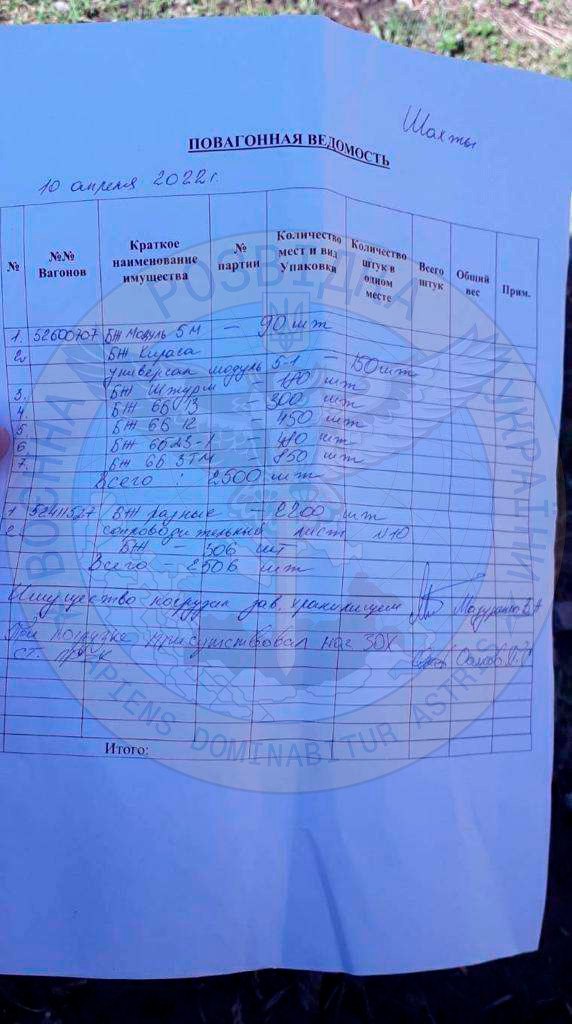 Шахты
ПОВАГОННАЯ ВЕДОМОСТЬ
10 апреля 2022 г.
№ №№ Вагонов Краткое наименование имущества № партии Количество мест и вид Упаковки Количество штук в одном месте Всего штук Общий вес Прим.
1. 52600707 БЖ Модуль 5М — 90 шт
2. БЖ Кираса
универсал модуль 5-1 — 150 шт
3. БЖ Штурм шт
4 БЖ 6Б13 — 300 шт
5 БЖ 6Б12 450 шт
6 БЖ 6Б23-1 шт
7. БЖ 6Б 3ТМ — 850 шт
Всего : 2500 шт
1 БЖ разные — 2200 шт
2. сопроводительный лист №10
БЖ — 306 шт
Всего — 2506 шт
Имущество погрузил зав. хранилищем
При погрузке присутствовал нач ЗОХ
ст. пр-к
Итого:
ВОЄННА РОЗВІДКА УКРАЇНИ
SAPIENS DOMINABITUR ASTRIS